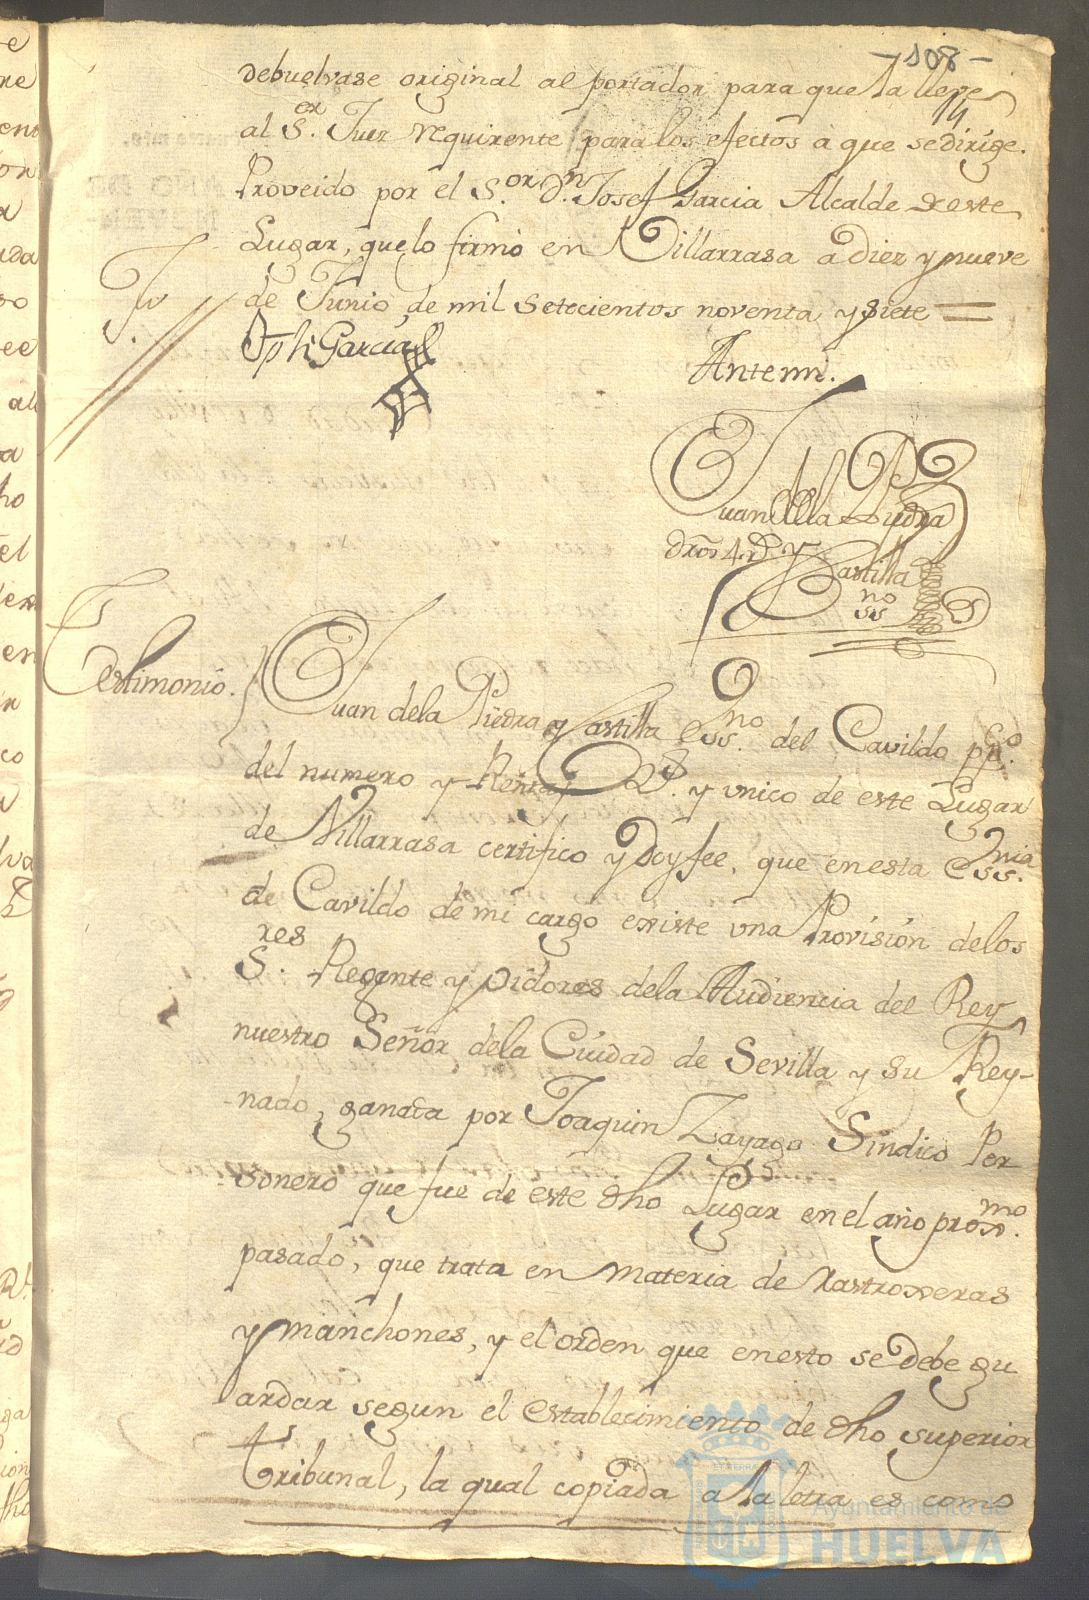 -108-
14
debuelvase original al portador para que la lleve
al S.or Juez requirente para los efectos a que se dirige.
Proveido por el S.or D.n Josef Garcia Alcalde de este
Lugar, que lo firmó en Villarrasa a diez y nueve
de Junio de mil setecientos noventa y siete =
Jph Garcia
Ante mi.
Juan de la Piedra
dros 4 r.s y Castilla
ss no
Testimonio. Juan de la Piedra y Castilla Ess.no del Cavildo pp.co
del numero y Rentas R.s y unico de este Lugar
de Villarrasa certifico y doy fee, que en esta Ess.nia
de Cavildo de mi cargo existe una Provisión de los
S.res Regente y oidores de la Audiencia del Rey
nuestro Señor de la Ciudad de Sevilla y su Rey-
nado, ganada por Joaquin Zayago Sindico Per
sonero que fue de este dho Lugar en el año prox.mo
pasado, que trata en materia de Rastroxeras
y manchones, y el orden que en esto se debe gu
ardar segun el establecimiento de dho superior
tribunal, la qual copiada a la letra es como
Ayuntamiento de
HUELVA